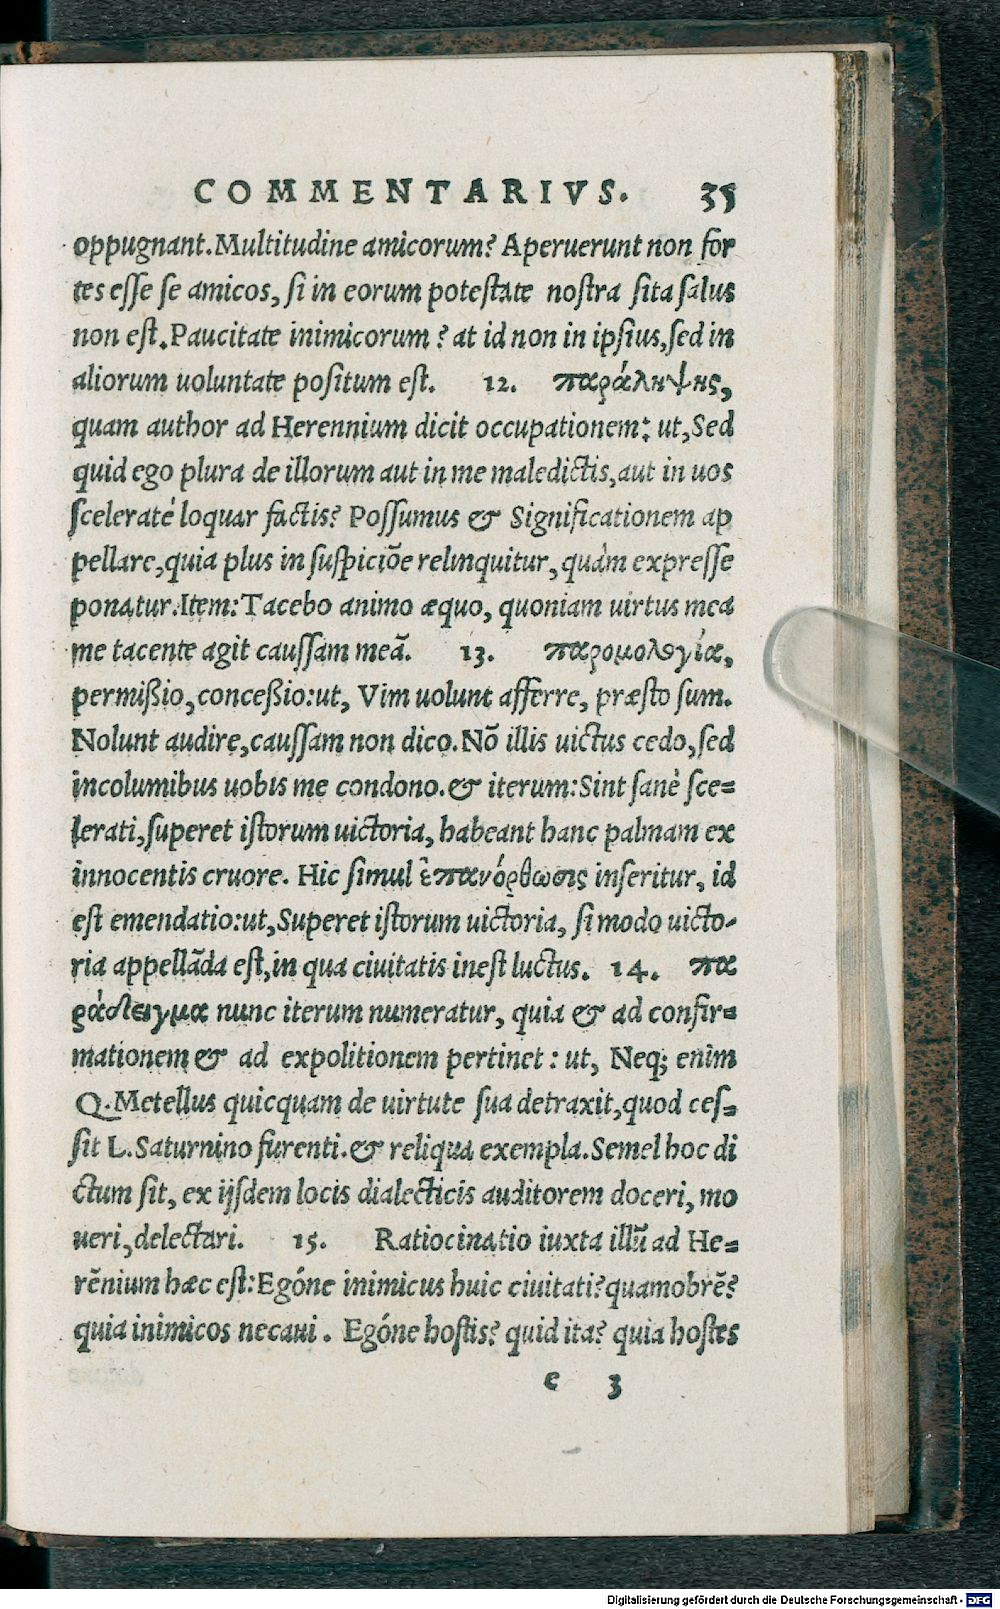 COMMENTARIVS. 35
oppugnant. Multitudine amicorum? Aperuerunt non for
tes esse se amicos, si in eorum potestate nostra sita salus
non est. Paucitate inimicorum? at id non in ipsius, sed in
aliorum uoluntate positum est. 12. παράληψης,
quam author ad Herennium dicit occupationem: ut, Sed
quid ego plura de illorum aut in me maledictis, aut in uos
sceleraté loquar factis? Possumus & Significationem ap
pellare, quia plus in suspiciõe relinquitur, quàm expresse
ponatur. Item: Tacebo animo æquo, quoniam uirtus mea
me tacente agit caussam meã. 13. παρομολογία,
permißio, conceßio: ut, Vim uolunt afferre, præsto sum.
Nolunt audire, caussam non dico. Nõ illis uictus cedo, sed
incolumibus uobis me condono. & iterum: Sint sanè sce=
lerati, superet istorum uictoria, habeant hanc palmam ex
innocentis cruore. Hic simul ἐπανόρθωσις inseritur, id
est emendatio: ut, Superet istorum uictoria, si modo uicto-
ria appellãda est, in qua ciuitatis inest luctus. 14. πα
ράδειγμα nunc iterum numeratur, quia & ad confir=
mationem & ad expolitionem pertinet: ut, Neq; enim
Q. Metellus quicquam de uirtute sua detraxit, quod ces=
sit L. Saturnino furenti. & reliqua exempla. Semel hoc di
ctum sit, ex ijsdem locis dialecticis auditorem doceri, mo
ueri, delectari. 15. Ratiocinatio iuxta illũ ad He=
rẽnium hæc est: Egóne inimicus huic ciuitati? quamobrẽ?
quia inimicos necaui. Egóne hostis? quid ita? quia hostes
c 3
Digitalisierung gefördert durch die Deutsche Forschungsgemeinschaft - DFG